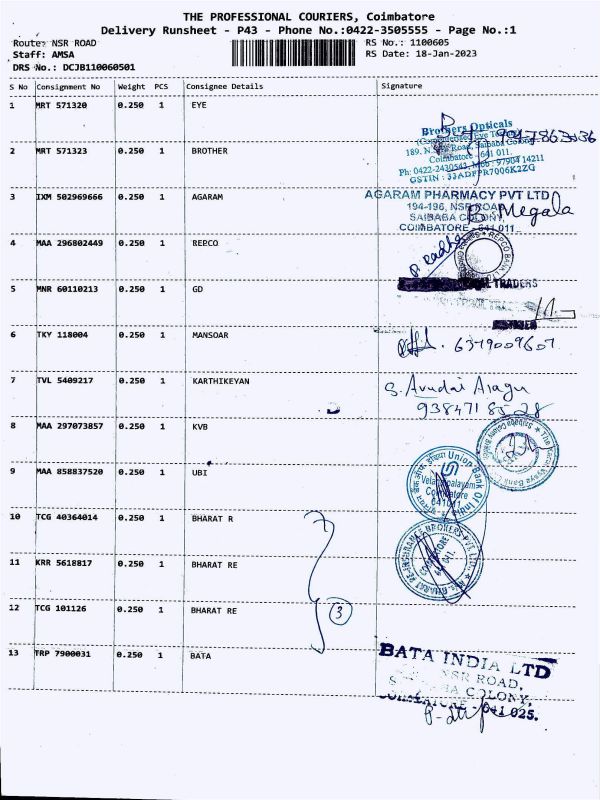 THE PROFESSIONAL COURIERS, Coimbatore
Delivery Runsheet - P43 - Phone No.:0422-3505555 - Page No.:1
Route: NSR ROAD
RS No.: 1100605
Staff: AMSA
RS Date: 18-Jan-2023
DRS No.: DCJB110060501
S No Consignment No Weight PCS Consignee Details Signature
1 MRT 571320 0.250 1 EYE
2 MRT 571323 0.250 1 BROTHER
Brothers Opticals
189, N.S.R. Road, Saibaba Colony
Coimbatore - 641 011.
Ph: 0422-2430543, Mob: 97904 14211
3 IXM 502969666 0.250 1 AGARAM
AGARAM PHARMACY PVT LTD
194-196, NSR ROAD
SAIBABA COLONY,
COIMBATORE - 641 011.
Megala
4 MAA 296802449 0.250 1 REPCO
P. Radha
REPCO BANK
5 MNR 60110213 0.250 1 GD
TRADERS
6 TKY 118004 0.250 1 MANSOAR
6379009607
7 TVL 5409217 0.250 1 KARTHIKEYAN
S. Avudai Aragu
9384718528
8 MAA 297073857 0.250 1 KVB
9 MAA 858837520 0.250 1 UBI
Union Bank Of India
Velandipalayam
Coimbatore
641011
10 TCG 40364014 0.250 1 BHARAT R
11 KRR 5618817 0.250 1 BHARAT RE
BHARAT RE-INSURANCE BROKERS PVT. LTD.
COIMBATORE
641 011.
12 TCG 101126 0.250 1 BHARAT RE
3
13 TRP 7900031 0.250 1 BATA
BATA INDIA LTD
NSR ROAD,
COLONY,
COIMBATORE - 641 025.